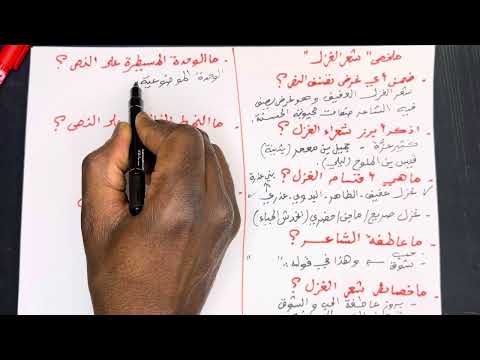 ملخص "شعر الغزل"
• ضمن أي غرض نصنف النص؟
شعر الغزل العفيف وهو غرض يصف
فيه الشاعر صفات محبوبته الحسنة.
• اذكر أبرز شعراء الغزل؟
كثير عزة - جميل بن معمر (بثينة)
قيس بن الملوح (ليلى).
• ما هي أقسام الغزل؟ بني عذرة
غزل عفيف. الطاهر. البدوي. عذري
غزل صريح/ ماجن/ حضري (لخدش الحياء)
• ما عاطفة الشاعر؟
- حب
- شوق وهذا في قوله: " "
• ما خصائص شعر الغزل؟
- بروز عاطفة الحب و الشوق
• ما الوحدة المسيطرة على النص؟
الوحدة الموضوعية
• ما النمط على النص؟